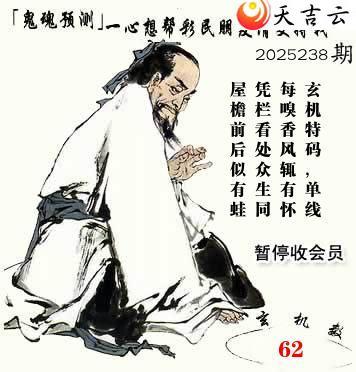 天吉云
「鬼魂预测」一心想帮彩民朋
2025238期
玄机特码,单线
每嗅香风辄有怀
凭栏看处众生同
屋檐前后似有蛙
暂停收会员
玄机数
62